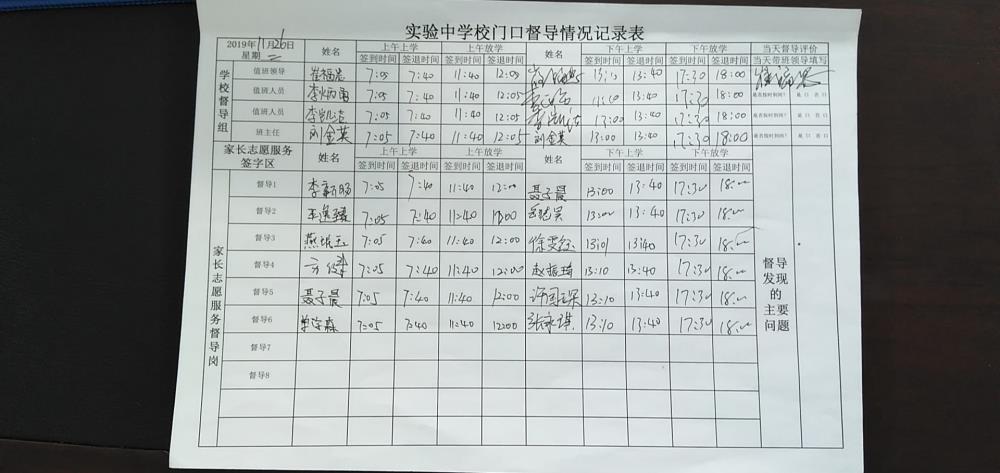 实验中学校门口督导情况记录表
2019年11月26日
星期二 姓名 上午上学 上午放学 姓名 下午上学 下午放学 当天督导评价
签到时间 签退时间 签到时间 签退时间 签到时间 签退时间 签到时间 签退时间 当天带班领导填写
学校督导组
值班领导 崔福 7:05 7:40 11:40 12:05 13:10 13:40 17:30 18:00
值班人员 李 7:05 7:40 11:40 12:05 13:40 17:30 18:00 是否按时到岗? 是口 否口
值班人员 李凯 7:05 7:40 11:40 12:05 李凯 13:00 13:40 17:30 18:00 是否按时到岗? 是口 否口
班主任 刘金英 7:05 7:40 11:40 12:05 刘金英 13:00 13:40 17:30 18:00 是否按时到岗? 是口 否口
家长志愿服务
签字区 姓名 上午上学 上午放学 姓名 下午上学 下午放学
签到时间 签退时间 签到时间 签退时间 签到时间 签退时间 签到时间 签退时间
家长志愿服务督导岗
督导1 李新旸 7:05 7:40 11:40 12:00 聂子晨 13:00 13:40 17:30 18:00
督导2 王 7:05 7:40 11:40 12:00 13:00 13:40 17:30 18:00
督导3 燕 玉 7:05 7:40 11:40 12:00 徐雯钰 13:01 13:40 17:30 18:00
督导4 方 7:05 7:40 11:40 12:00 赵振琦 13:10 13:40 17:30 18:00
督导5 聂子晨 7:05 7:40 11:40 12:00 许 13:10 13:40 17:30 18:00
督导6 森 7:05 7:40 11:40 12:00 张家琪 13:10 13:40 17:30 18:00
督导7
督导8
督导
发现
的
主要
问题